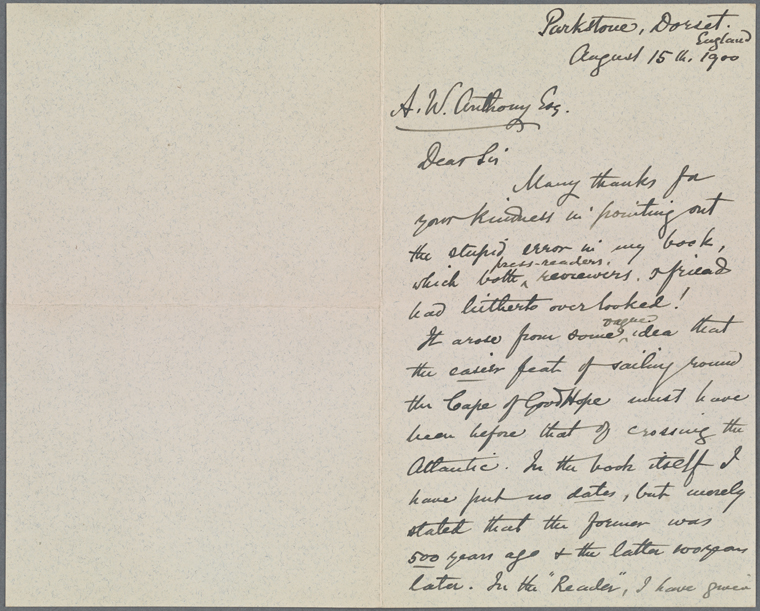 Parkstone, Dorset.
England
August 15th. 1900
A. W. Anthony Esq.
Dear Sir
Many thanks for
your kindness in pointing out
the stupid error in my book,
which both press-readers, reviewers, & friend
had hitherto overlooked!
It arose from some vague idea that
the easier feat of sailing round
the Cape of Good Hope must have
been before that of crossing the
Atlantic. In the book itself I
have put no dates, but merely
stated that the former was
500 years ago & the latter 100 years
later. In the "Reader", I have given